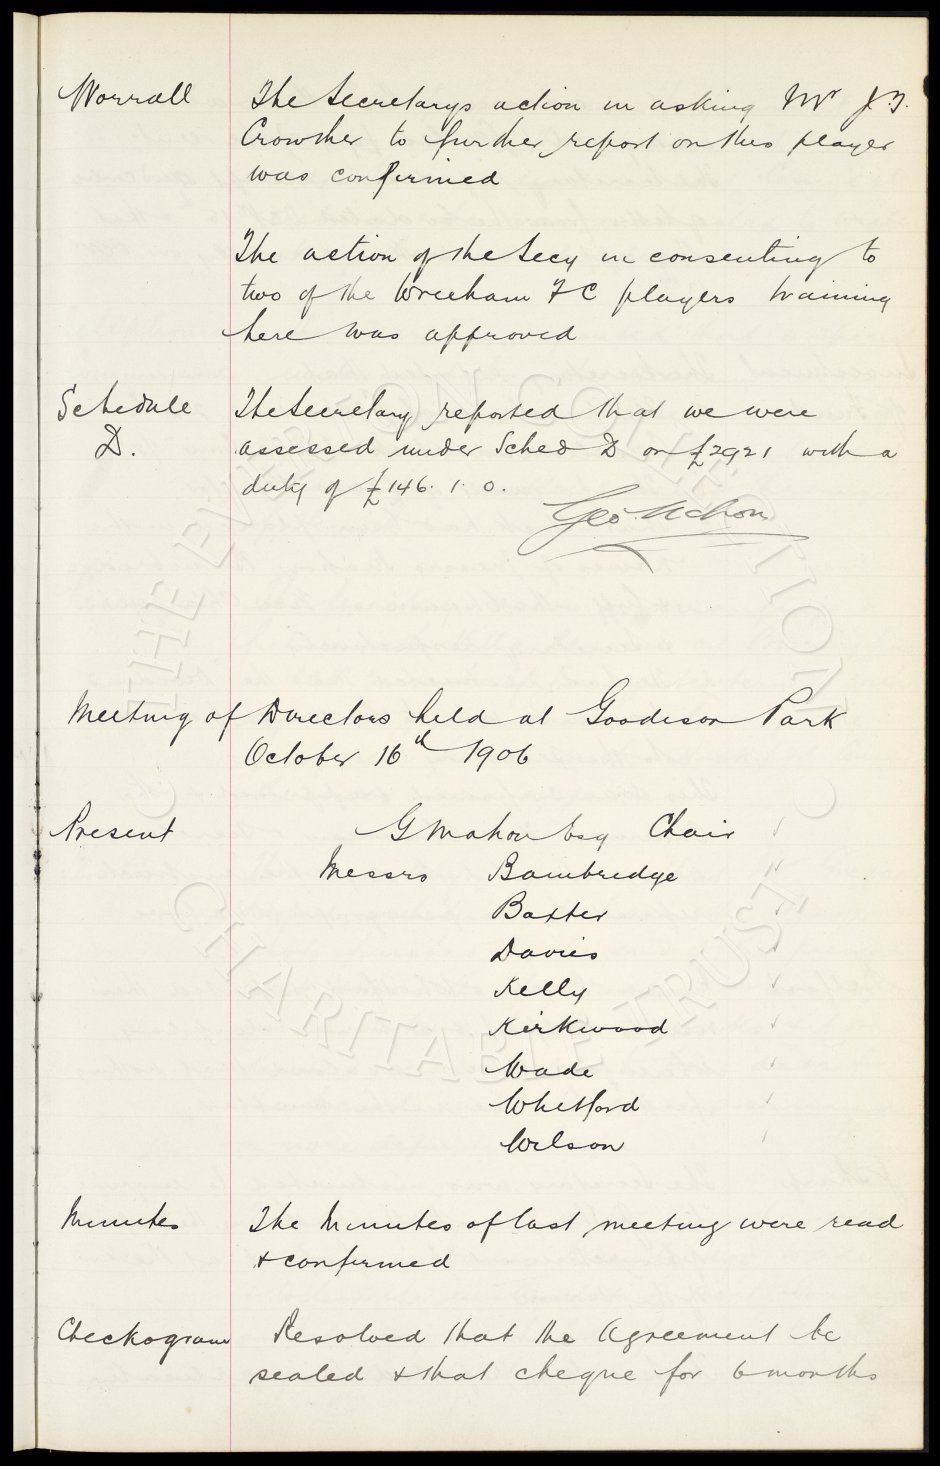 Worrall The Secretarys action in asking Mr J.T.
Crowther to further report on this player
was confirmed
The action of the Secy in consenting to
two of the Wrexham F C players training
here was approved
Schedule D. The Secretary reported that we were
assessed under Sched D on £2921 with a
duty of £146. 1. 0.
Geo. Mahon
Meeting of Directors held at Goodison Park
October 16th 1906
Present G Mahon Esq Chair
Messrs Bainbridge
Baxter
Davies
Kelly
Kirkwood
Wade
Whitford
Wilson
Minutes The Minutes of last meeting were read
& confirmed
Checkogram Resolved that the Agreement be
sealed & that cheque for 6 months
THE EVERTON COLLECTION
CHARITABLE TRUST